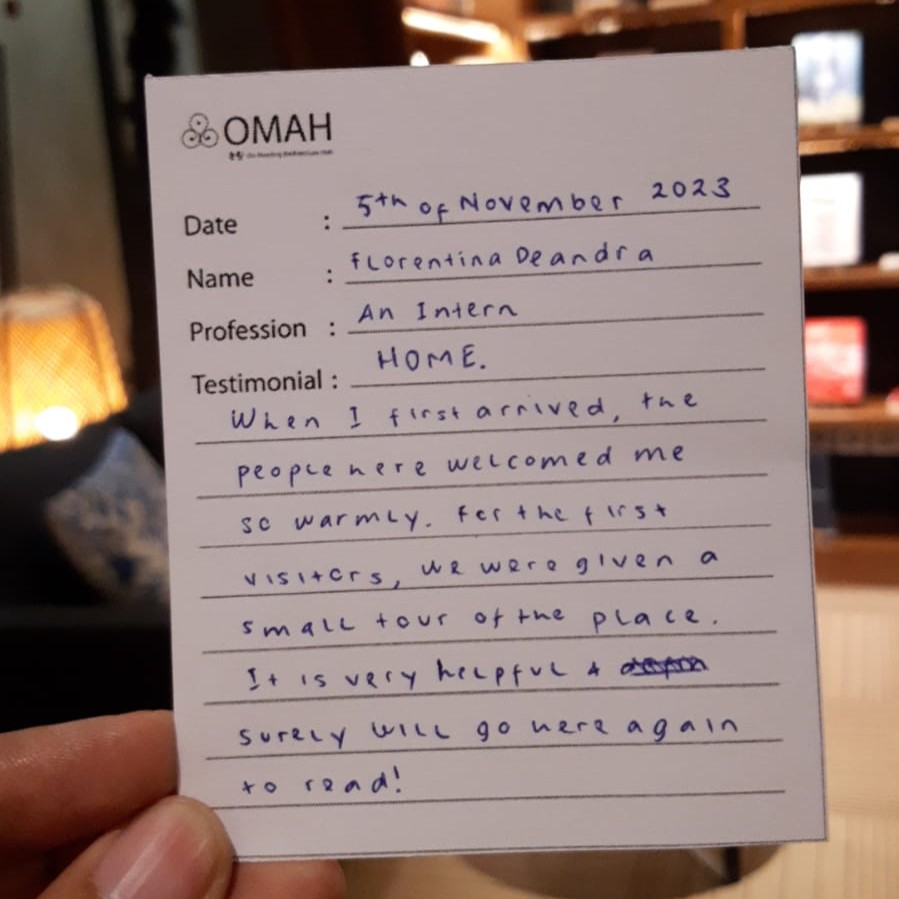 OMAH
Date : 5th of November 2023
Name : Florentina Deandra
Profession : An Intern
Testimonial : HOME.
When I first arrived, the
people here welcomed me
so warmly. For the first
visitors, we were given a
small tour of the place.
It is very helpful &
surely will go here again
to read!